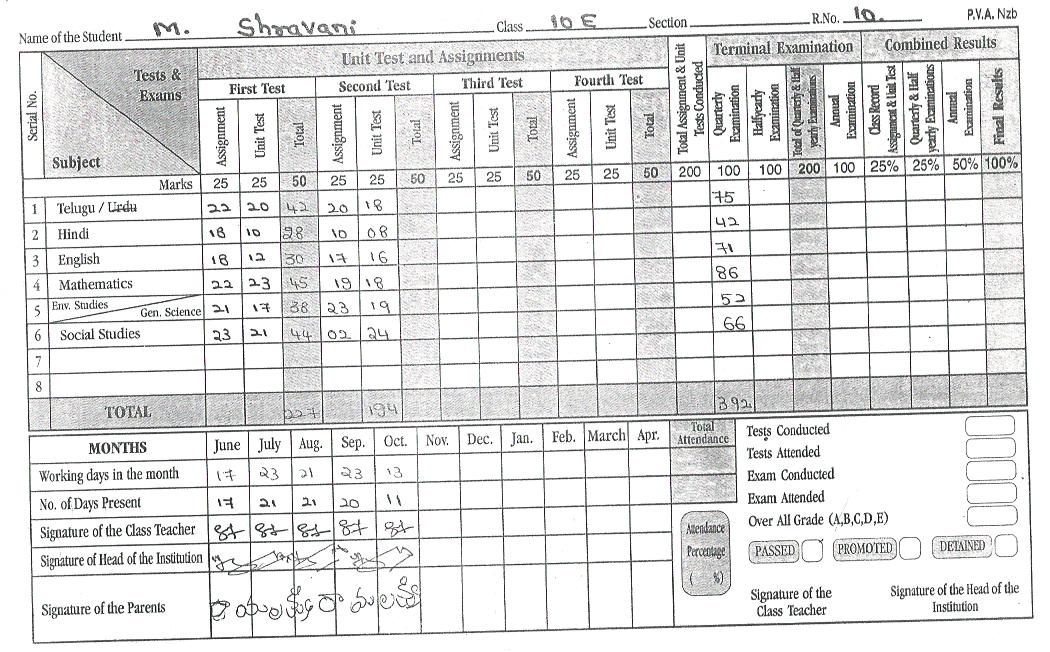 Name of the Student M. Shravani Class 10 E Section R.No. 10. P.V.A. Nzb
Serial No. Tests & Exams Subject Unit Test and Assignments Total Assignment & Unit Tests Conducted Terminal Examination Combined Results
First Test Second Test Third Test Fourth Test Quarterly Examination Halfyearly Examination Total of Quarterly & Half yearly Examinations Annual Examination Class Record Assignment & Unit Test Quarterly & Half yearly Examinations Annual Examination Final Results
Assignment Unit Test Total Assignment Unit Test Total Assignment Unit Test Total Assignment Unit Test Total
Marks 25 25 50 25 25 50 25 25 50 25 25 50 200 100 100 200 100 25% 25% 50% 100%
1 Telugu / Urdu 22 20 42 20 18 75
2 Hindi 18 10 28 10 08 42
3 English 18 12 30 17 16 71
4 Mathematics 22 23 45 19 18 86
5 Env. Studies Gen. Science 21 17 38 23 19 52
6 Social Studies 23 21 44 02 24 66
7
8
TOTAL 227 194 392
MONTHS June July Aug. Sep. Oct. Nov. Dec. Jan. Feb. March Apr. Total Attendance
Working days in the month 17 23 21 23 13
No. of Days Present 17 21 21 20 11
Signature of the Class Teacher
Signature of Head of the Institution
Signature of the Parents
Attendance Percentage ( %)
Tests Conducted
Tests Attended
Exam Conducted
Exam Attended
Over All Grade (A,B,C,D,E)
PASSED PROMOTED DETAINED
Signature of the Class Teacher
Signature of the Head of the Institution